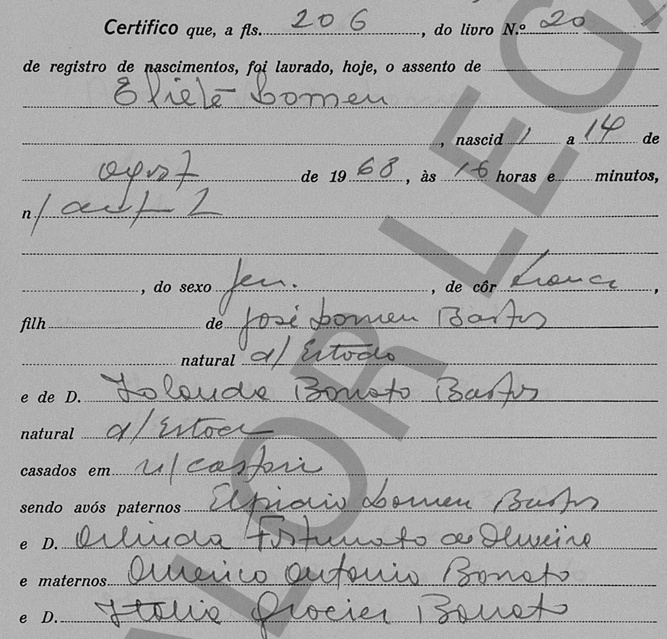 Certifico que, a fls. 206, do livro N.º 20
de registro de nascimentos, foi lavrado, hoje, o assento de
Eliete Lomeu
, nascid a 14 de
agost de 1968, às 16 horas e minutos,
n/
, do sexo fem. , de côr branca ,
filh de José Lomeu Bastos
natural d/ Estado
e de D. Iolanda Bonato Bastos
natural d/ Estado
casados em n/ cartori
sendo avós paternos Elpidio Lomeu Bastos
e D. Arlinda Fortunato de Oliveira
e maternos Americo Antonio Bonato
e D. Italia Bonato
VALOR LEGA